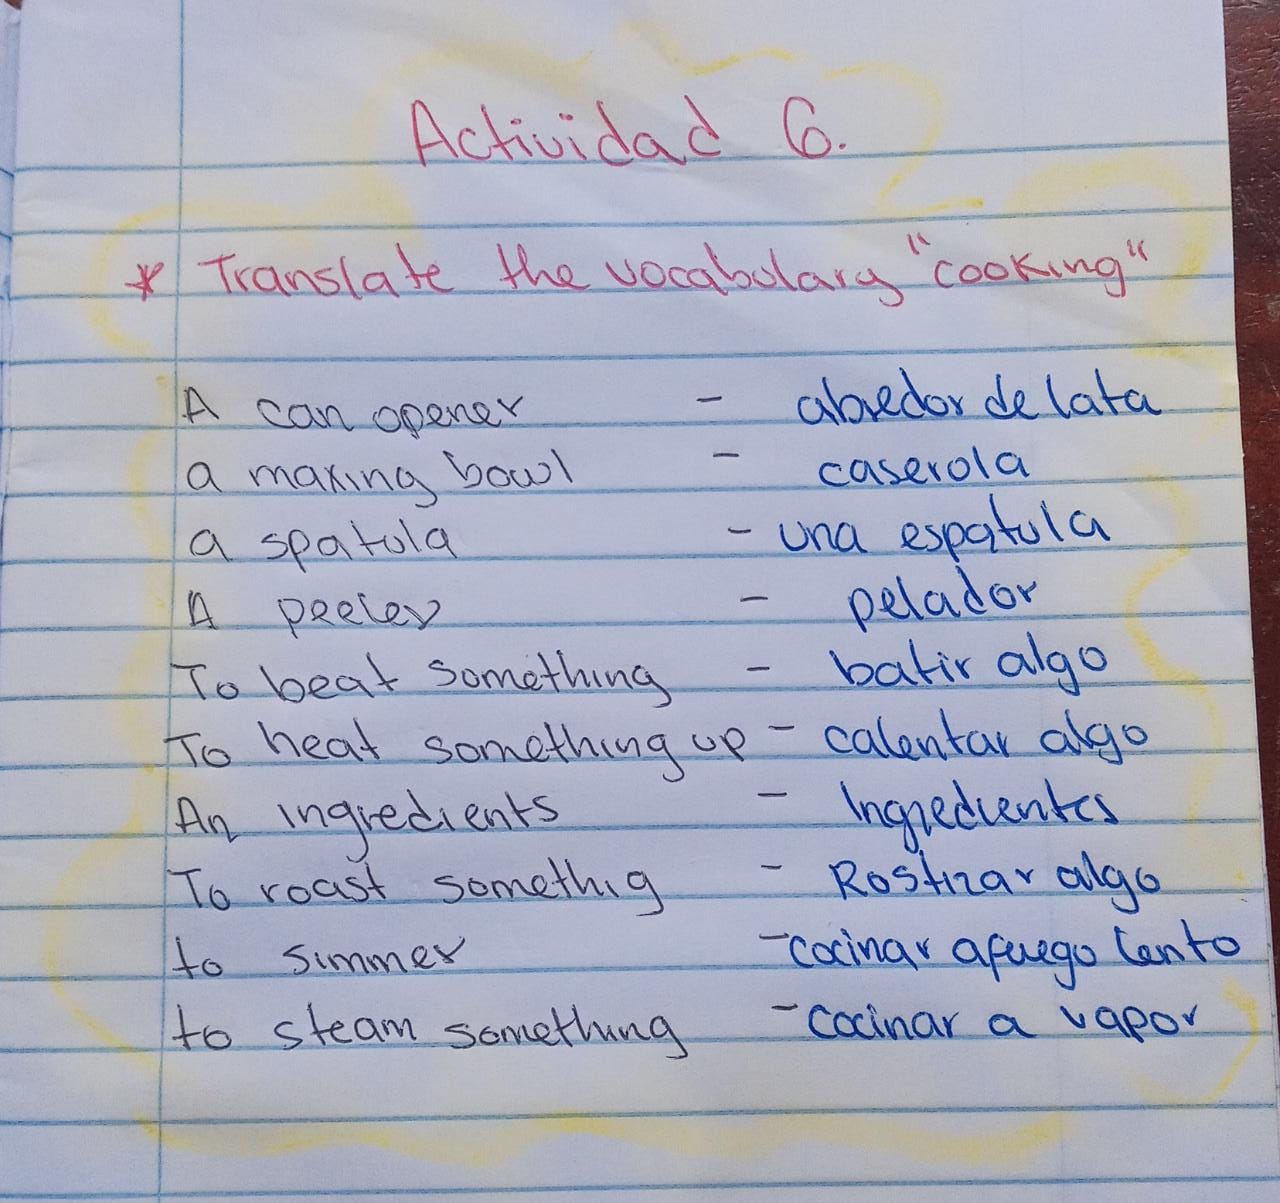 Actividad 6.
* Translate the vocabulary "cooking"
A can opener - abredor de lata
a maxing bowl - caserola
a spatula - una espatula
A peeler - pelador
To beat something - batir algo
To heat something up - calentar algo
An ingredients - Ingredientes
To roast somethig - Rostizar algo
to simmer - cocinar a fuego lento
to steam something - cocinar a vapor